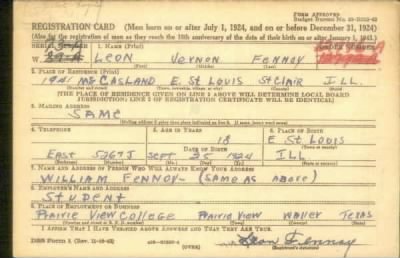 FORM APPROVED
REGISTRATION CARD (Men born on or after July 1, 1924, and on or before December 31, 1924)
(Also for the registration of men as they reach the 18th anniversary of the date of their birth on or after January 1, 1943.)
SERIAL NUMBER 1. NAME (Print) ORDER NUMBER
W LEON VERNON FENNOY
2. PLACE OF RESIDENCE (Print)
1947 McCASLAND E. ST LOUIS ST CLAIR ILL.
[THE PLACE OF RESIDENCE GIVEN ON LINE 2 ABOVE WILL DETERMINE LOCAL BOARD
JURISDICTION; LINE 2 OF REGISTRATION CERTIFICATE WILL BE IDENTICAL]
3. MAILING ADDRESS
SAME
[Mailing address if other than place indicated on line 2. If same, insert word same]
4. TELEPHONE 5. AGE IN YEARS 6. PLACE OF BIRTH
18 E ST LOUIS
DATE OF BIRTH (Town or county)
EAST 5267J SEPT 25 1924 ILL
(Exchange) (Number) (Mo.) (Day) (Yr.) (State or country)
7. NAME AND ADDRESS OF PERSON WHO WILL ALWAYS KNOW YOUR ADDRESS
WILLIAM FENNOY - (SAME AS ABOVE)
8. EMPLOYER'S NAME AND ADDRESS
STUDENT
9. PLACE OF EMPLOYMENT OR BUSINESS
PRAIRIE VIEW COLLEGE PRAIRIE VIEW WALLER TEXAS
I AFFIRM THAT I HAVE VERIFIED ABOVE ANSWERS AND THAT THEY ARE TRUE.
DSS Form 1 (Rev. 11-16-42) (OVER) Leon Fennoy
(Registrant's signature)